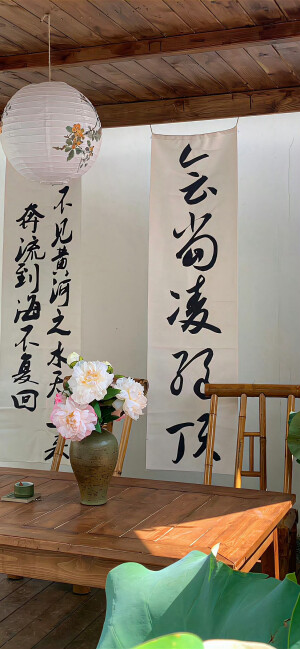 会当凌绝顶
不见黄河之水天上来
奔流到海不复回